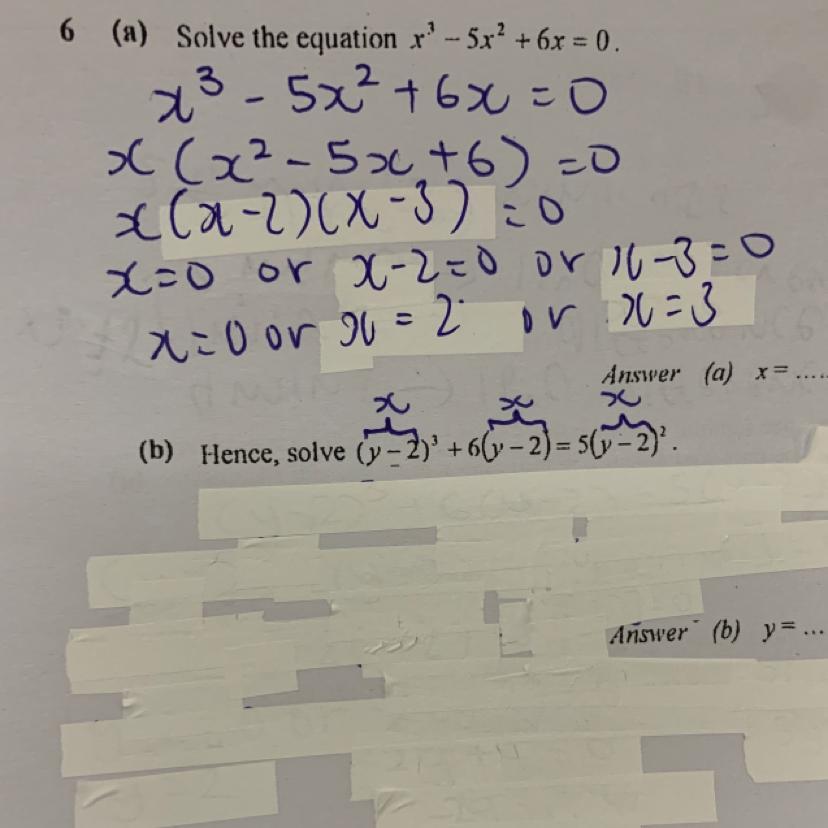 6 (a) Solve the equation x³ – 5x² + 6x = 0.
x³ - 5x² + 6x = 0
x (x² - 5x + 6) = 0
x(x-2)(x-3) = 0
x=0 or x-2=0 or x-3=0
x=0 or x = 2 or x=3
Answer (a) x = ....
x x x
(b) Hence, solve (y – 2)³ + 6(y – 2) = 5(y – 2)².
Answer (b) y = ...